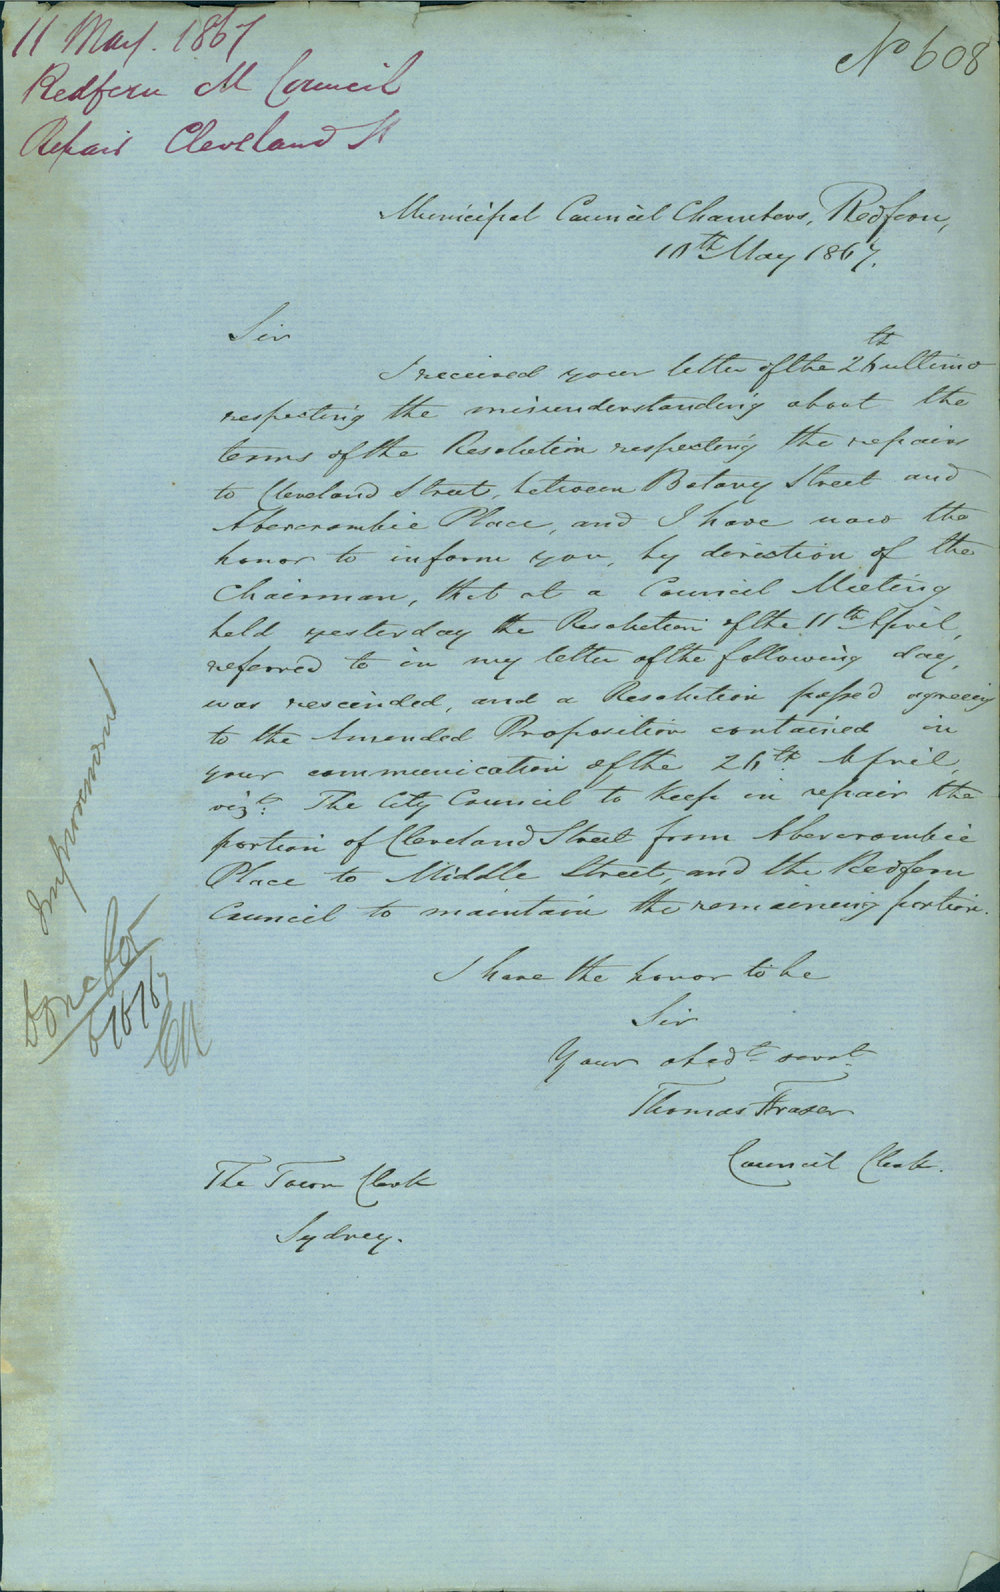 11 May. 1867
Redfern M Council
Repair Cleveland St
No 608
Municipal Council Chambers, Redfern,
10th May 1867.
Sir
I received your letter of the 26th ultimo
respecting the misunderstanding about the
terms of the Resolution respecting the repairs
to Cleveland Street, between Botany Street and
Abercrombie Place, and I have now the
honor to inform you, by direction of the
Chairman, that at a Council Meeting
held yesterday the Resolution of the 11th April,
referred to in my letter of the following day,
was rescinded, and a Resolution passed agreeing
to the Amended Proposition contained in
your communication of the 26th April,
vizt. The City Council to keep in repair the
portion of Cleveland Street from Abercrombie
Place to Middle Street, and the Redfern
Council to maintain the remaining portion.
I have the honor to be
Sir
Your obedt servt
Thomas Fraser
Council Clerk.
The Town Clerk
Sydney.
Improvement
6/6/67